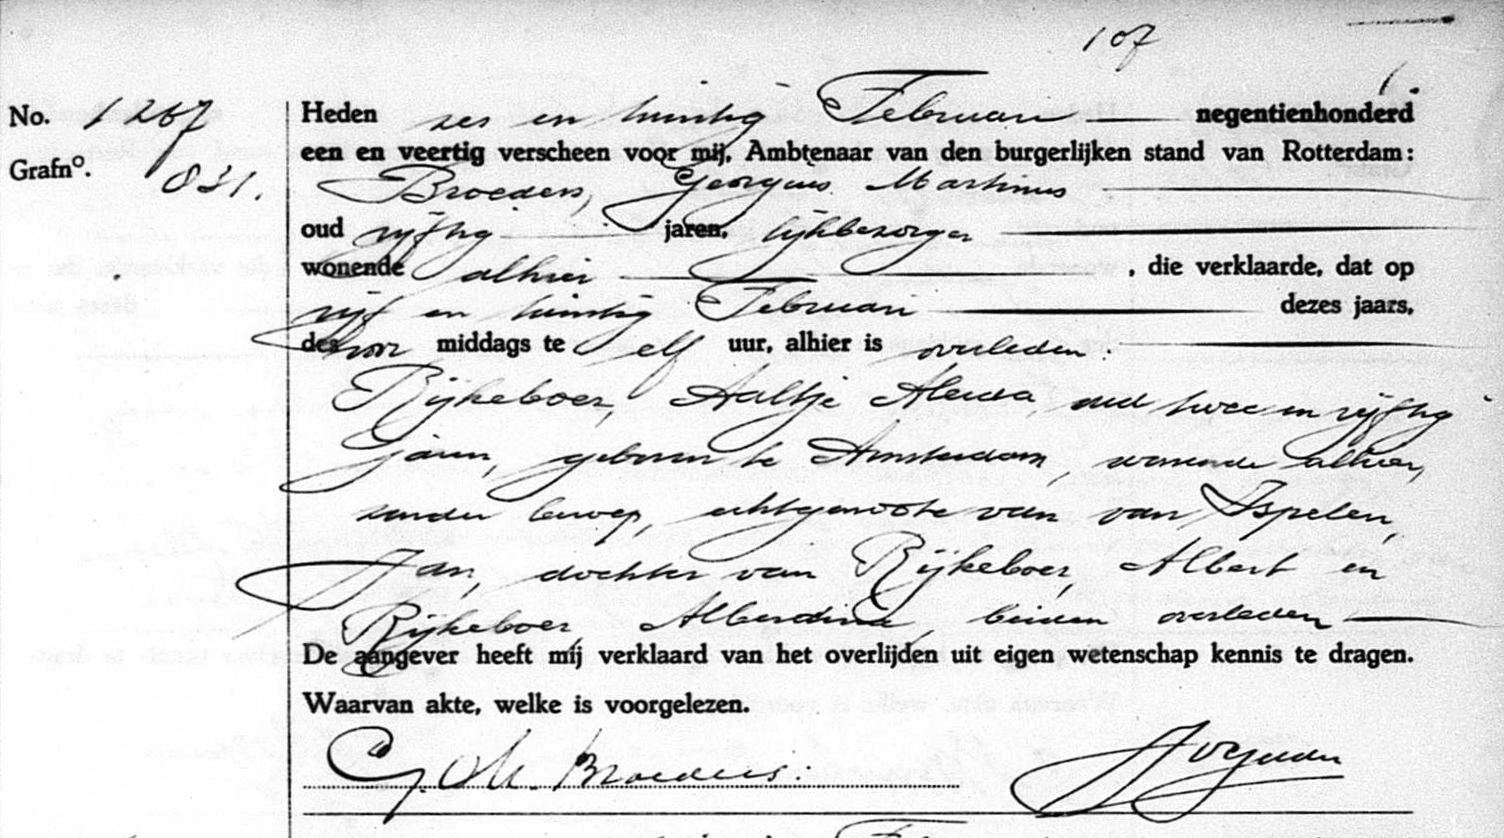 107
No. 1267
Grafno. 831.
Heden zes en twintig Februari negentienhonderd
een en veertig verscheen voor mij, Ambtenaar van den burgerlijken stand van Rotterdam:
Broeders, Georgius Martinus
oud vijftig jaren, lijkbezorger
wonende alhier , die verklaarde, dat op
vijf en twintig Februari dezes jaars,
des voor middags te elf uur, alhier is overleden:
Rijkeboer, Aaltje Aleida oud twee en vijftig
jaren, geboren te Amsterdam, wonende alhier,
zonder beroep, echtgenoote van van Ispelen,
Jan, dochter van Rijkeboer, Albert en
Rijkeboer, Alberdina, beiden overleden
De aangever heeft mij verklaard van het overlijden uit eigen wetenschap kennis te dragen.
Waarvan akte, welke is voorgelezen.
G. M. Broeders.